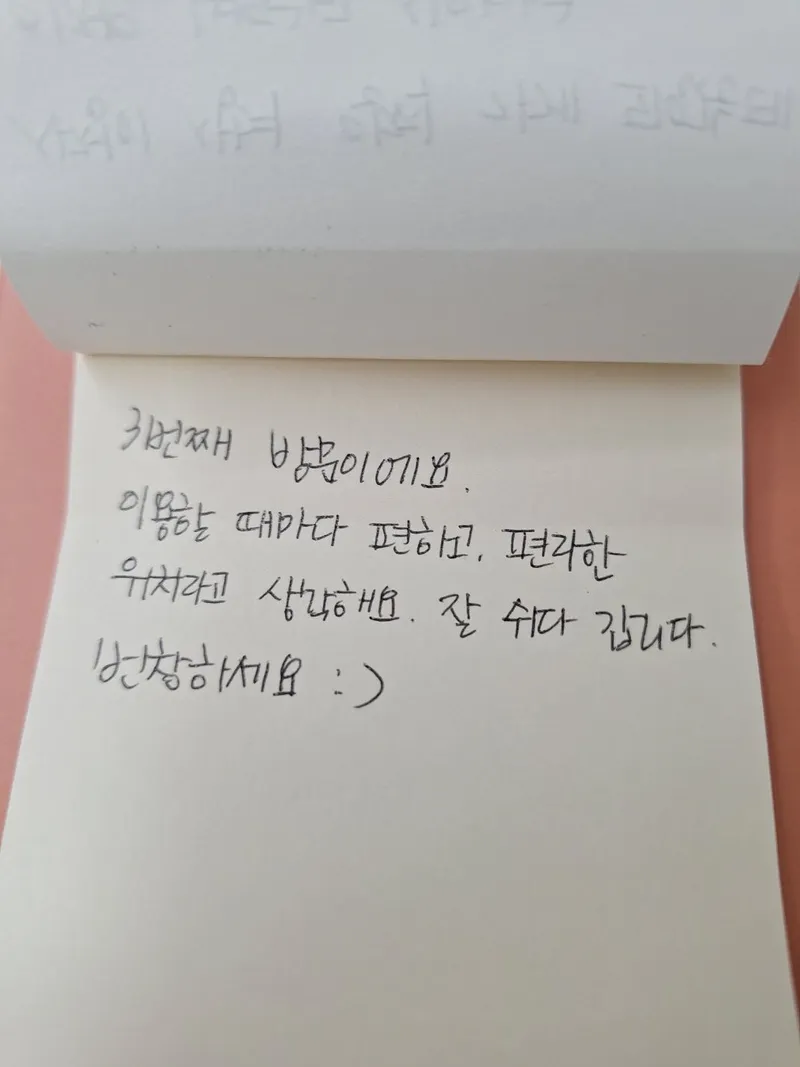 3번째 방문이에요.
이용할 때마다 편하고, 편리한
위치라고 생각해요. 잘 쉬다 갑니다.
번창하세요 :)